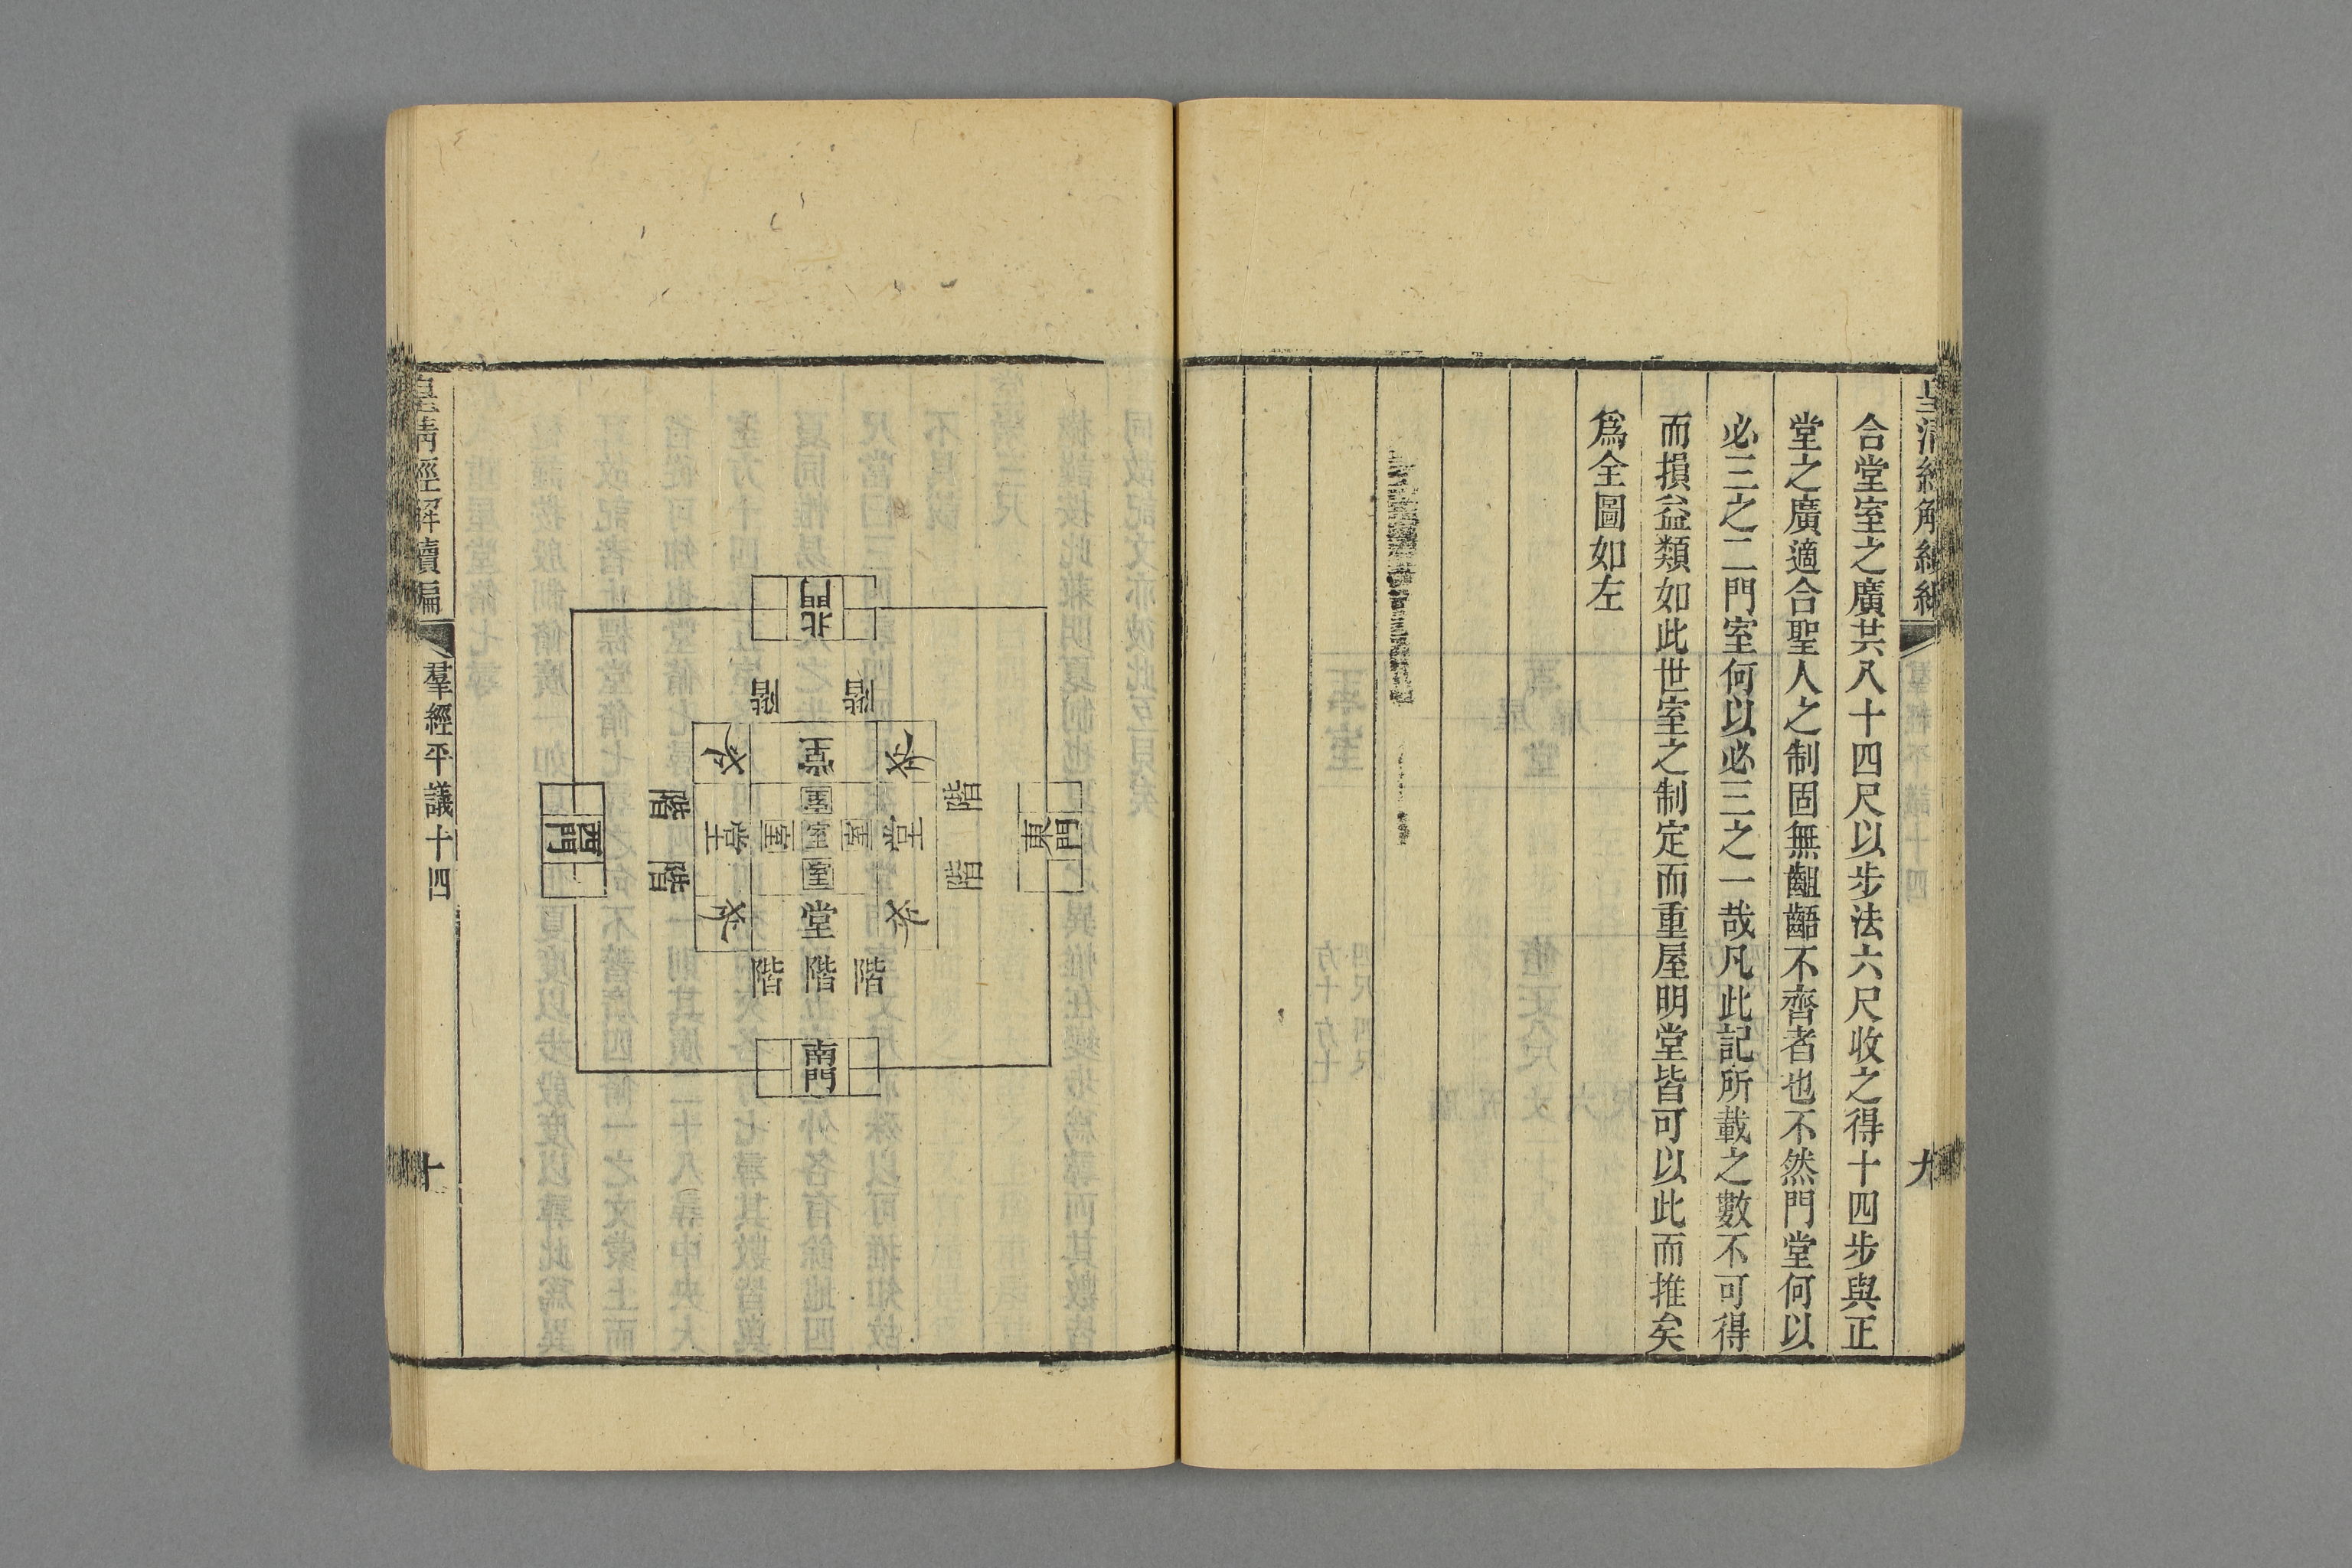 皇清經解續編
九
合堂室之廣共八十四尺以步法六尺收之得十四步與正
堂之廣適合聖人之制固無齟齬不齊者也不然門堂何以
必三之二門室何以必三之一哉凡此記所載之數不可得
而損益類如此世室之制定而重屋明堂皆可以此而推矣
爲全圖如左
北門
階
階
夾
堂
夾
階
階
室
東門
西門
堂
室
室
室
堂
階
階
室
夾
堂
夾
階
階
階
南門
皇清經解續編
羣經平議十四
十